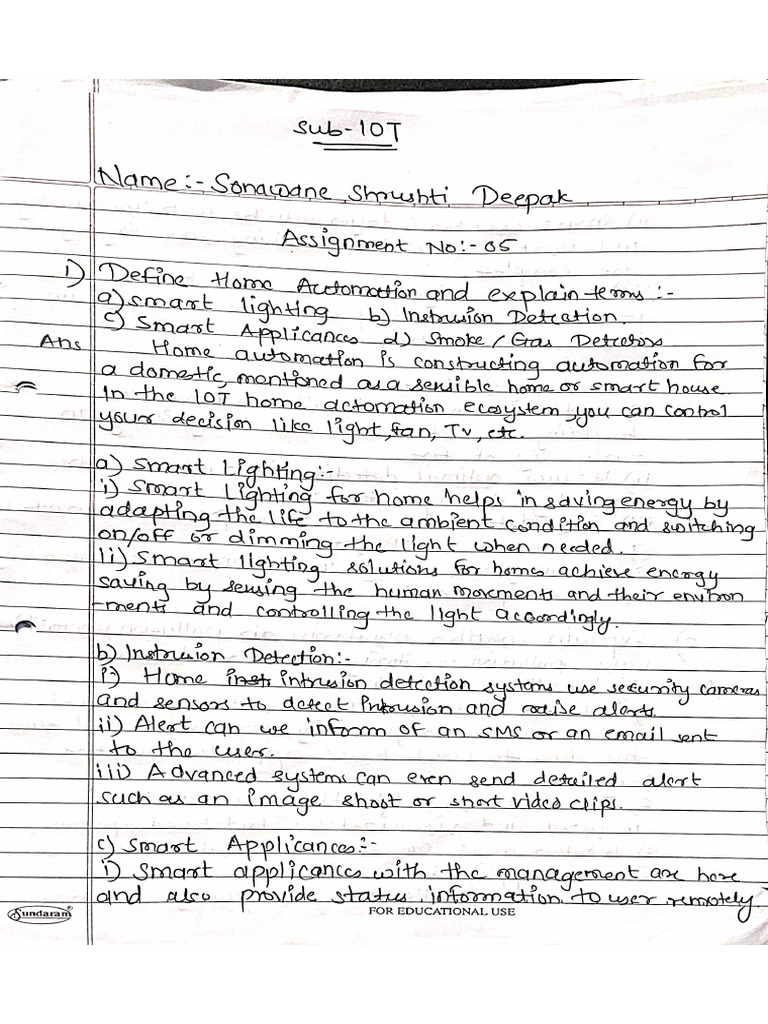 Sub-IOT
Name:- Sonawane Shrushti Deepak
Assignment No:- 05
1) Define Home Automation and explain terms :-
a) smart lighting b) Instrusion Detection.
c) Smart Applicances d) Smoke / Gas Detectors
Ans Home automation is constructing automation for
a domestic, mentioned as a sensible home or smart house.
In the IOT home actomation ecosystem, you can control
your decision like light, fan, Tv, etc.
a) Smart Lighting:-
i) Smart Lighting for home helps in saving energy by
adapting the life to the ambient condition and switching
on/off or dimming the light when needed.
ii) Smart lighting solutions for homes achieve energy
saving by sensing the human movements and their environ
-ments and controlling the light accordingly.
b) Instrusion Detection:-
i) Home intrusion detection systems use security cameras
and sensors to detect intrusion and raise alerts.
ii) Alert can we inform of an SMS or an email sent
to the user.
iii) Advanced systems can even send detailed alert
such as an image shoot or short video clips.
c) Smart Applicances:-
i) Smart applicances with the management are here
and also provide status information to user remotely
Sundaram FOR EDUCATIONAL USE